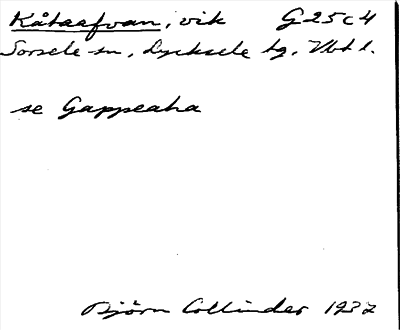 Kåtaafvan, vik G 25 c 4
Sorsele sn, Lycksele tg. Vbt l.
se Gappeaha
Björn Collinder 1937